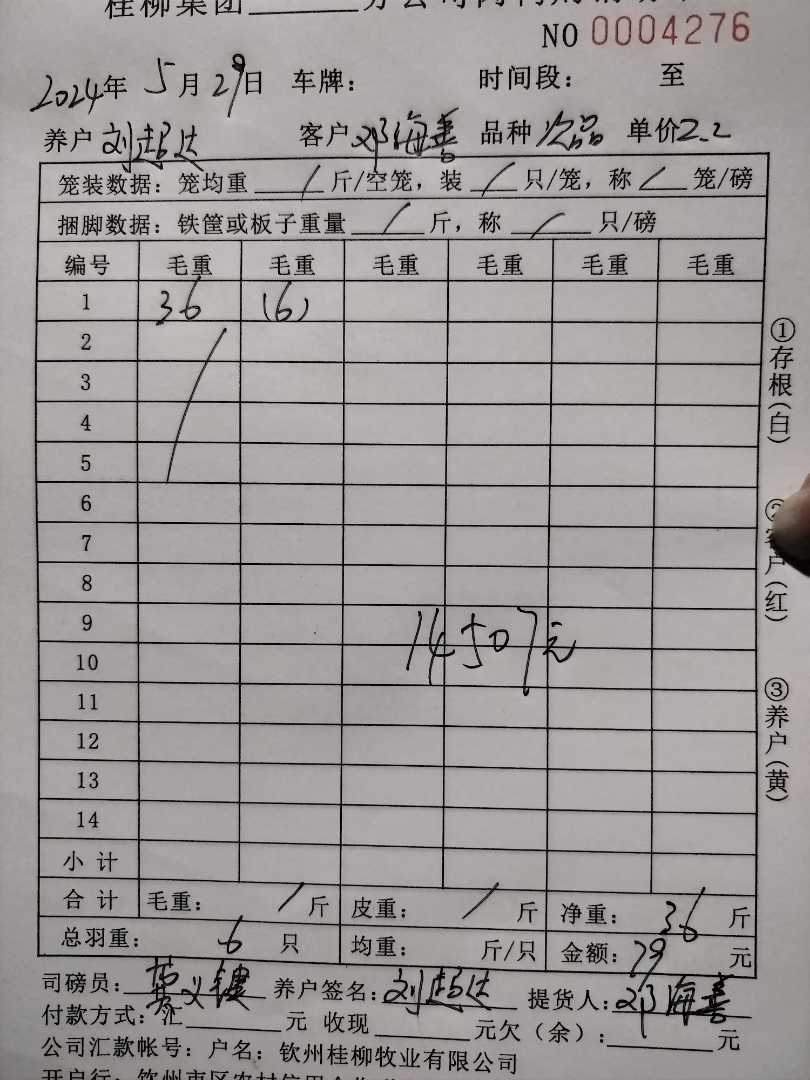 桂柳集团
NO 0004276
2024年 5月29日 车牌： 时间段： 至
养户 刘超达 客户 邓海善 品种 次品 单价2.2
笼装数据：笼均重 / 斤/空笼，装 / 只/笼，称 / 笼/磅
捆脚数据：铁筐或板子重量 / 斤，称 / 只/磅
编号 毛重 毛重 毛重 毛重 毛重 毛重
1 36 (6)
2
3
4
5
6
7
8
9
14507元
10
11
12
13
14
小计
合计 毛重： / 斤 皮重： / 斤 净重： 36 斤
总羽重： 6 只 均重： 斤/只 金额：79 元
司磅员： 养户签名：刘超达 提货人：邓海善
付款方式：汇 元 收现 元欠（余）： 元
公司汇款帐号：户名：钦州桂柳牧业有限公司
①存根(白)
②客户(红)
③养户(黄)